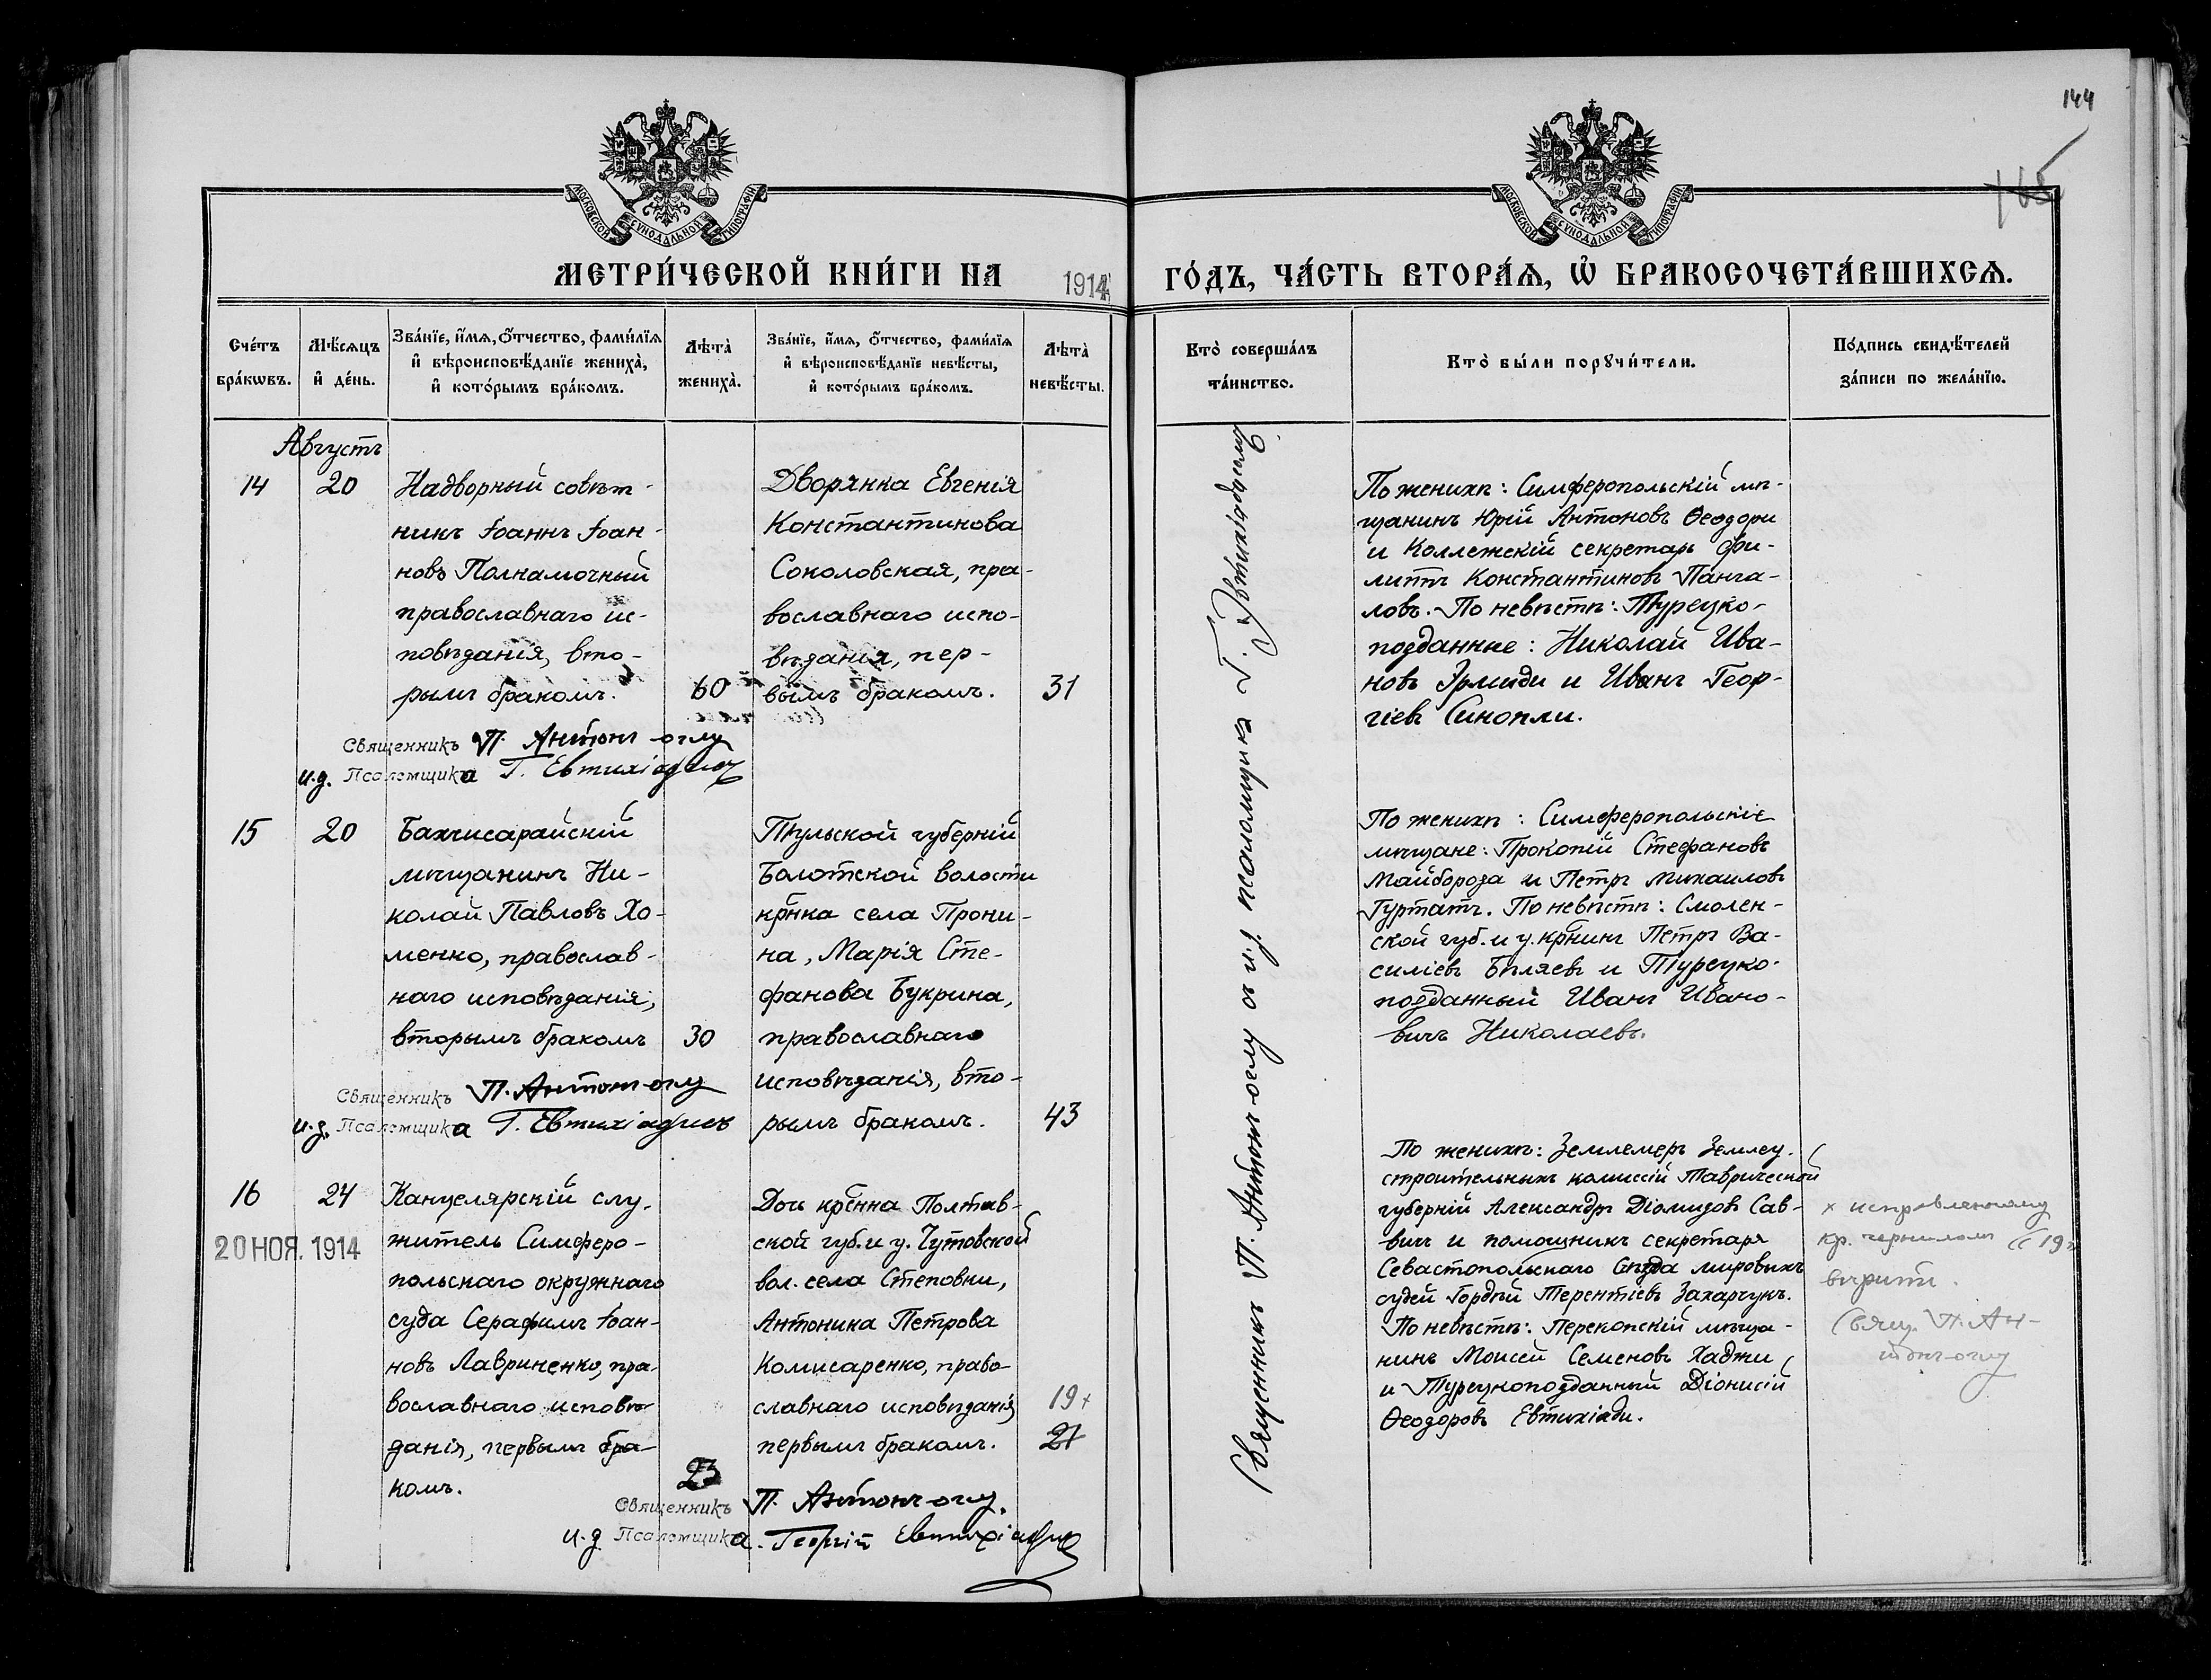 144
165
МОСКОВСКОЙ СѴНОДАЛЬНОЙ ТИПОГРАФІИ
МОСКОВСКОЙ СѴНОДАЛЬНОЙ ТИПОГРАФІИ
МЕТРИ́ЧЕСКОЙ КНИ́ГИ НА 1914 ГО́ДЪ, ЧА́СТЬ ВТОРА́Ѧ, Ѡ҆ БРАКОСОЧЕТА́ВШИХСѦ.
Сче́тъ
бра́кѡвъ.
Мѣ́сѧцъ
и҆ де́нь.
Зва́нїе, и҆́мѧ, ѻ҆́тчество, фами́лїѧ
и҆ вѣроисповѣ́данїе жениха̀,
и҆ кото́рымъ бра́комъ.
Лѣ́та̀
жениха̀.
Зва́нїе, и҆́мѧ, ѻ҆́тчество, фами́лїѧ
и҆ вѣроисповѣ́данїе невѣ́сты,
и҆ кото́рымъ бра́комъ.
Лѣ́та̀
невѣ́сты.
Кто̀ соверша́лъ
та́инство.
Кто̀ бы́ли порꙋчи́тели.
По́дпись свидѣ́телей
за́писи по жела́нїю.
Августъ
14
20
Надворный совѣт-
никъ Іоаннъ Іоан-
новъ Полнамочный
православнаго ис-
повѣданія, вто-
рымъ бракомъ.
60
Дворянка Евгенія
Константинова
Соколовская, пра-
вославнаго испо-
вѣданія, пер-
вымъ бракомъ.
31
Священникъ П. Антонъ-оглу
и.д. Псаломщика Г. Евтихіадисъ
По женихѣ: Симферопольскій мѣ-
щанинъ Юрій Антоновъ Ѳеодори
и Коллежскій секретарь Фи-
липпъ Константиновъ Панга-
ловъ. По невѣстѣ: Турецко-
подданные: Николай Ива-
новъ Эрмиди и Иванъ Геор-
гіевъ Синопли.
15
20
Бахчисарайскій
мѣщанинъ Ни-
колай Павловъ Хо-
менко, православ-
наго исповѣданія,
вторымъ бракомъ
30
Тульской губерній
Болотской волости
крнка села Прони-
на, Марія Сте-
фанова Букрина,
православнаго
исповѣданія, вто-
рымъ бракомъ.
43
Священникъ П. Антонъ-оглу
и.д. Псаломщика Г. Евтихіадисъ
По женихѣ: Симферопольскіе
мѣщане: Прокопій Стефановъ
Майборода и Петръ Михаиловъ
Гуртатъ. По невѣстѣ: Смолен-
ской губ. и у. крнинъ Петръ Ва-
силіевъ Бѣляевъ и Турецко-
подданный Иванъ Ивано-
вичъ Николаевъ.
16
24
20 НОЯ. 1914
Канцелярскій слу-
житель Симферо-
польскаго окружнаго
суда Серафимъ Іоан-
новъ Лавриненко, пра-
вославнаго исповѣ-
данія, первымъ бра-
комъ.
23
Дочь крѐнна Полтав-
ской губ. и у. Чутовской
вол. села Степовки,
Антонина Петрова
Комисаренко, право-
славнаго исповѣданія
первымъ бракомъ.
19+
21
Священникъ П. Антонъ-оглу.
и.д. Псаломщика. Георгій Евтихіадисъ
По женихѣ: Землемеръ Землеу-
строительныхъ комиссій Таврической
губерній Александръ Діомидовъ Сав-
вичъ и помощникъ секретаря
Севастопольскаго Съѣзда мировыхъ
судей Гордѣй Терентіевъ Захарчукъ.
По невѣстѣ: Перекопскій мѣща-
нинъ Моисей Семеновъ Хаджи
и Турецкоподданный Діонисій
Ѳеодоровъ Евтихіади.
Священникъ П. Антонъ-оглу съ и.д. псаломщика Г. Эвтихіадисомъ
× исправленному
кр. чернилом («19»
вѣрить.
Свящ. П. Ан-
тонъ-оглу